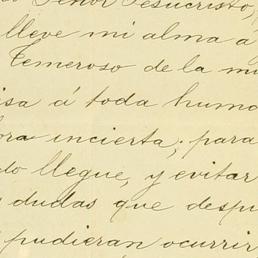 Señor Jesucristo,
lleve mi alma á
Temeroso de la mu
isa á toda huma
ora incierta; para
do llegue, y evitar
dudas que despu
pudieran ocurrir